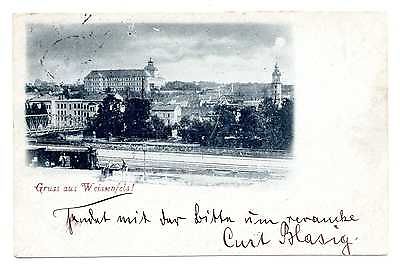 Gruss aus Weissenfels!
Sendet mit der Bitte um revanche
Curt Blasig.